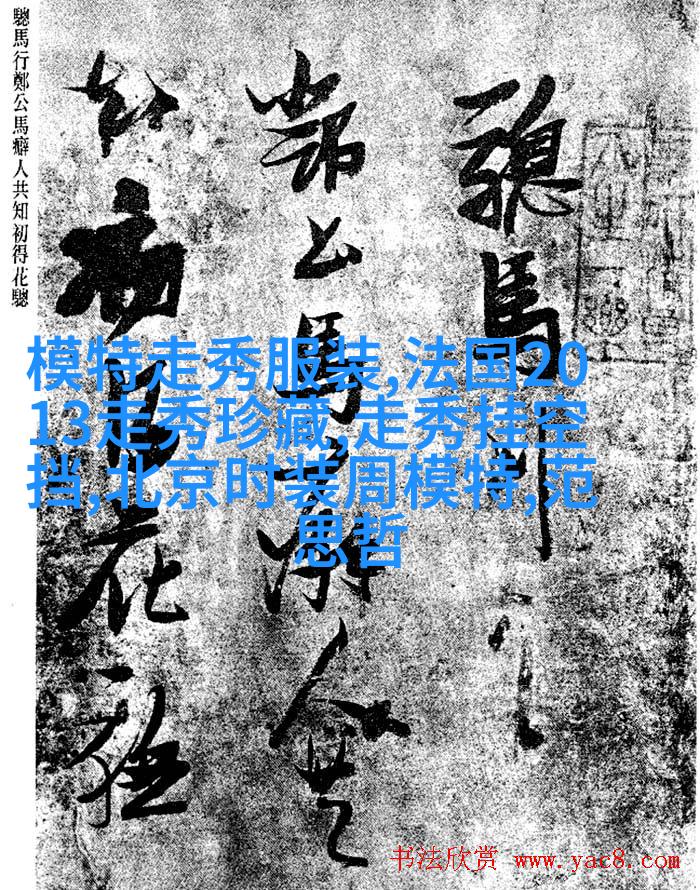 驄馬行
鄭公馬癖人共
知初得花驄
驄馬行鄭公馬癖人共知初得花驄
模特走秀服装,法国20
13走秀珍藏,走秀挂空
挡,北京时装周模特,范
思哲
书法欣赏 www.yac8.com